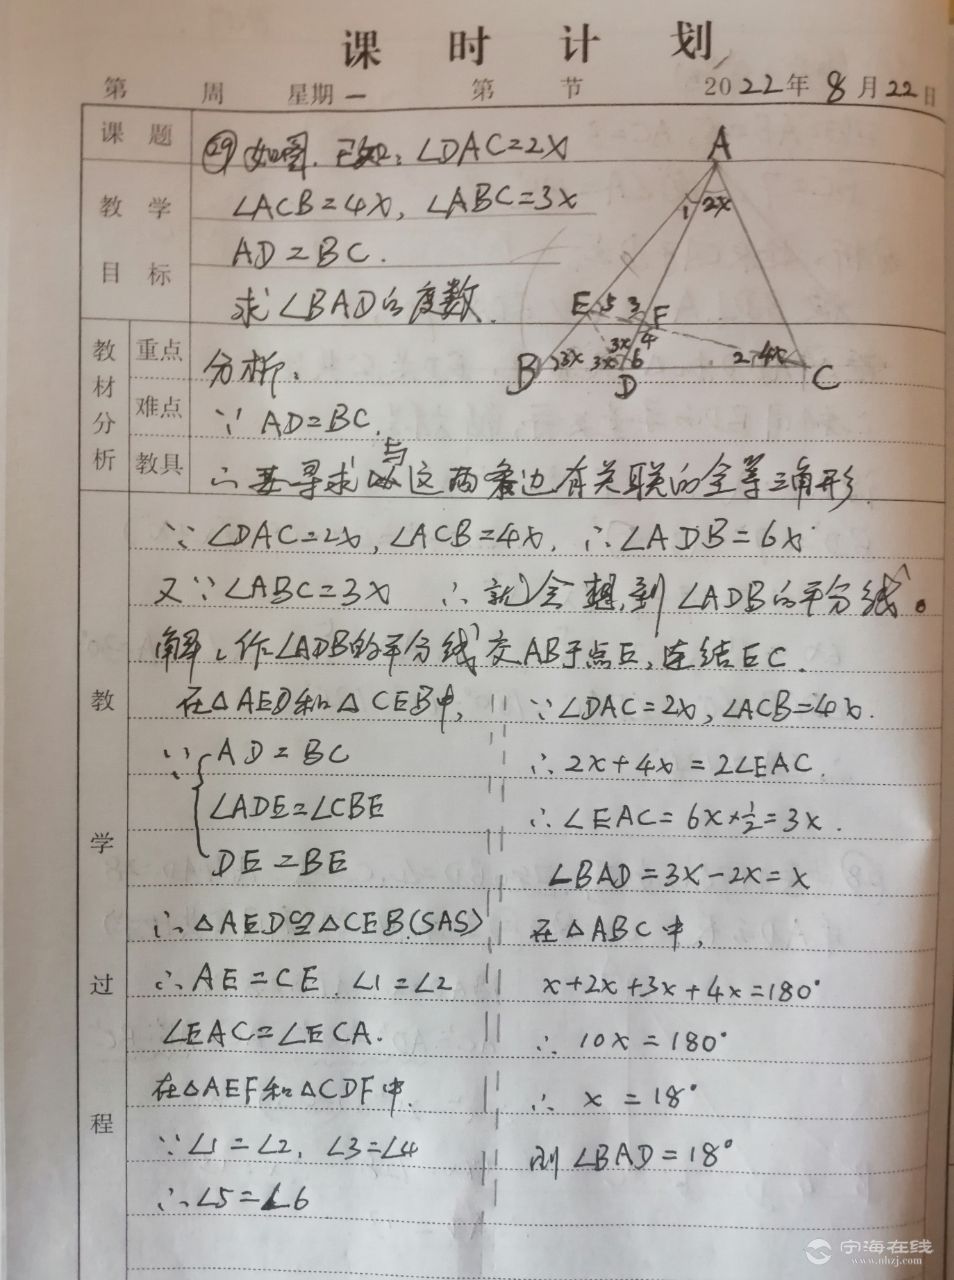 课时计划
第 周 星期一 第 节 2022年8月22日
课题
㉙如图,已知:∠DAC=2x
教学目标
∠ACB=4x, ∠ABC=3x
AD=BC.
求∠BAD的度数.
A
1 2x
E 5 3 F
3x 4
B 3x 3x 6 2 4x C
D
教材分析
重点
难点
教具
分析:
∵ AD=BC.
∴要寻求与这两条边有关联的全等三角形.
∵∠DAC=2x, ∠ACB=4x, ∴∠ADB=6x
又∵∠ABC=3x ∴就会想到∠ADB的平分线。
教学过程
解:作∠ADB的平分线交AB于点E,连结EC.
在△AED和△CEB中,
∵ AD=BC
∠ADE=∠CBE
DE=BE
∴△AED≌△CEB(SAS)
∴AE=CE, ∠1=∠2
∠EAC=∠ECA.
在△AEF和△CDF中.
∵∠1=∠2, ∠3=∠4
∴∠5=∠6
∵∠DAC=2x, ∠ACB=4x.
∴2x+4x=2∠EAC.
∴∠EAC=6x×½=3x.
∠BAD=3x-2x=x
在△ABC中,
x+2x+3x+4x=180°
∴ 10x=180°
∴ x=18°
则∠BAD=18°
宁海在线
www.nhzj.com